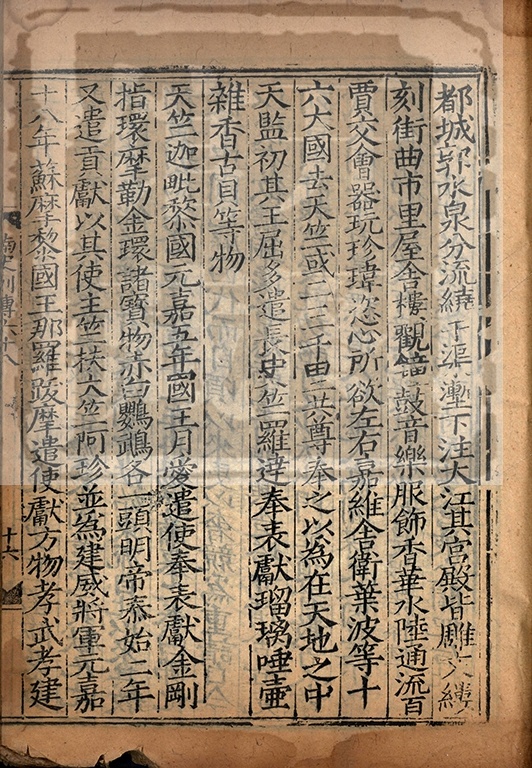 都城郛水泉分流繞于渠壍下注大江其宮殿皆雕文鏤
刻街曲市里屋舍樓觀鐘鼓音樂服飾香華水陸通流百
賈交會器玩珍瑋恣心所欲左右嘉維舍衛葉波等十
六大國去天竺或二三千里共尊奉之以為在天地之中
天監初其王屈多遣長史竺羅達奉表獻瑠璃唾壺
雜香古貝等物
天竺迦毗黎國元嘉五年國王月愛遣使奉表獻金剛
指環摩勒金環諸寶物赤白鸚鵡各一頭明帝泰始二年
又遣貢獻以其使主竺扶大竺阿珍並為建威將軍元嘉
十八年蘇摩黎國王那羅跋摩遣使獻方物孝武孝建
南史列傳六十八
十六